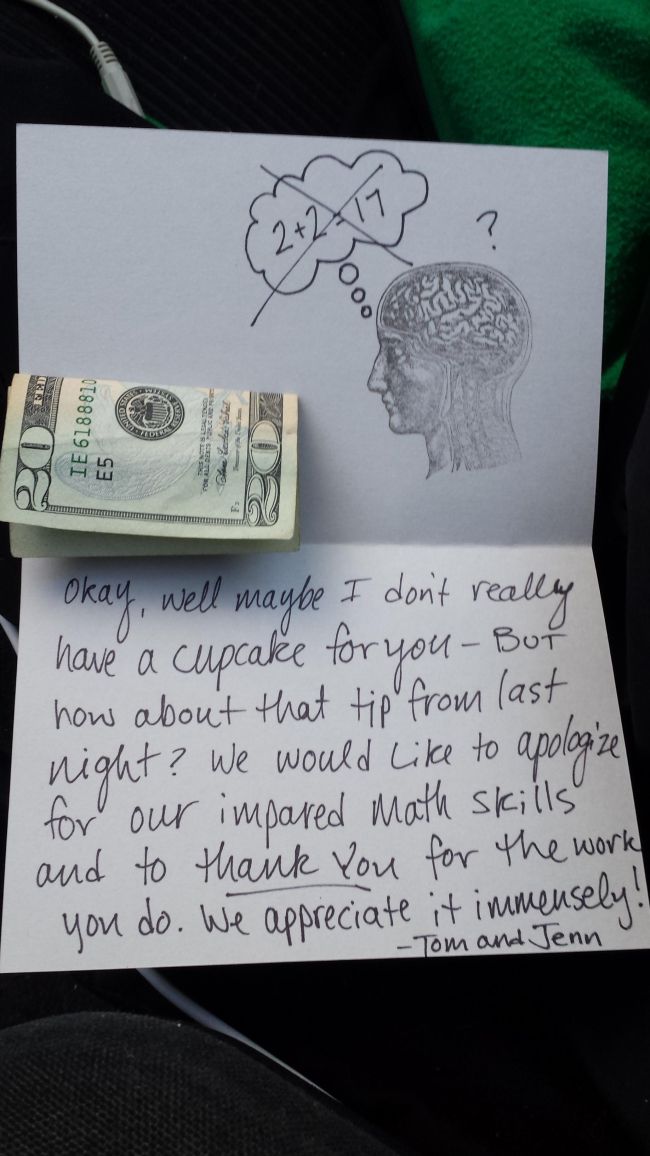 2+2=17
?
20
FED
IE6188810
E5
20
Okay, well maybe I don't really
have a cupcake for you - BUT
how about that tip from last
night? We would like to apologize
for our impared math skills
and to thank you for the work
you do. We appreciate it immensely!
-Tom and Jenn